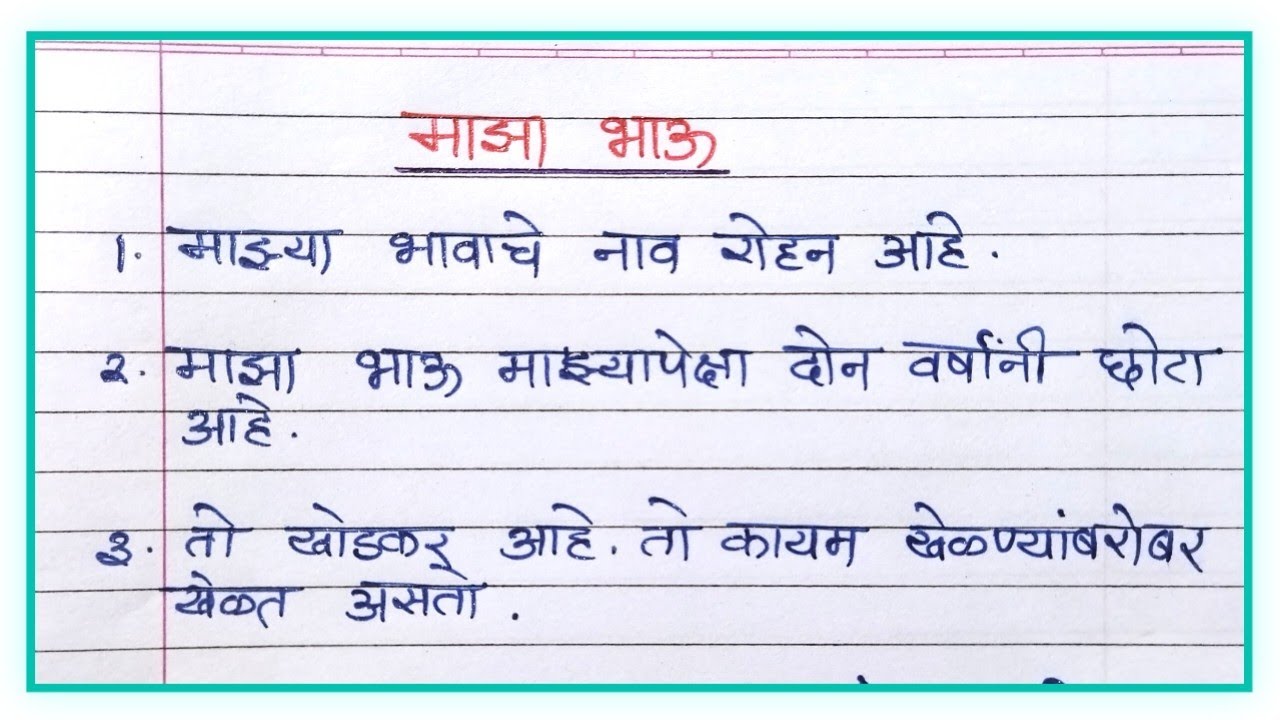 माझा भाऊ
१. माझ्या भावाचे नाव रोहन आहे.
२. माझा भाऊ माझ्यापेक्षा दोन वर्षांनी छोटा
आहे.
३. तो खोडकर आहे. तो कायम खेळण्यांबरोबर
खेळत असतो.